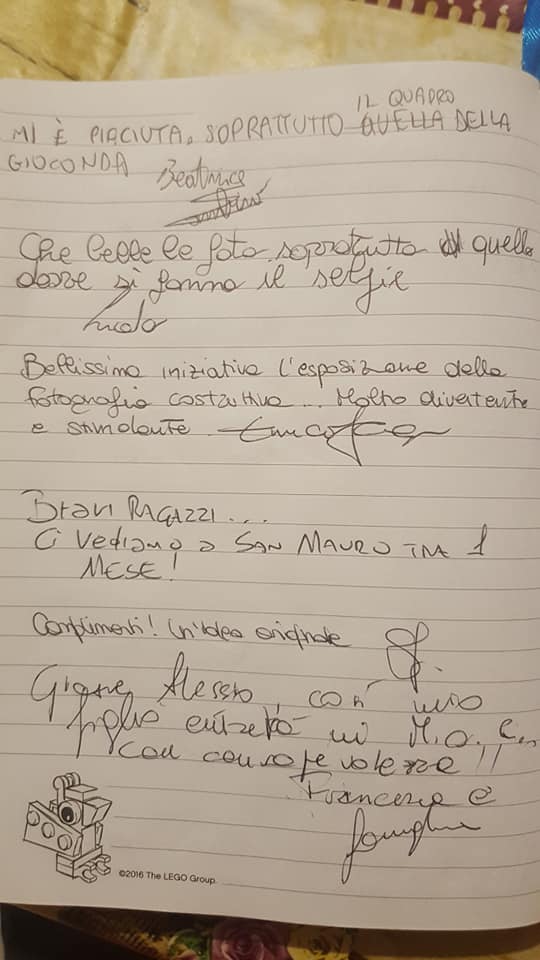 IL QUADRO
MI È PIACIUTA, SOPRATTUTTO QUELLA DELLA
GIOCONDA Beatrice
Che belle le foto soprattutto quella
dove si fanno il selfie
Bellissima iniziativa l'esposizione della
fotografia costruttiva... Molto divertente
e stimolante
Bravi RAGAZZI...
Ci vediamo a SAN MAURO TRA 1
MESE!
Complimenti! Un'idea originale
Grazie Alessio, così mio
figlio entrerà in M.O.C.
con consapevolezza!!
Francesca e
famiglia
©2016 The LEGO Group.